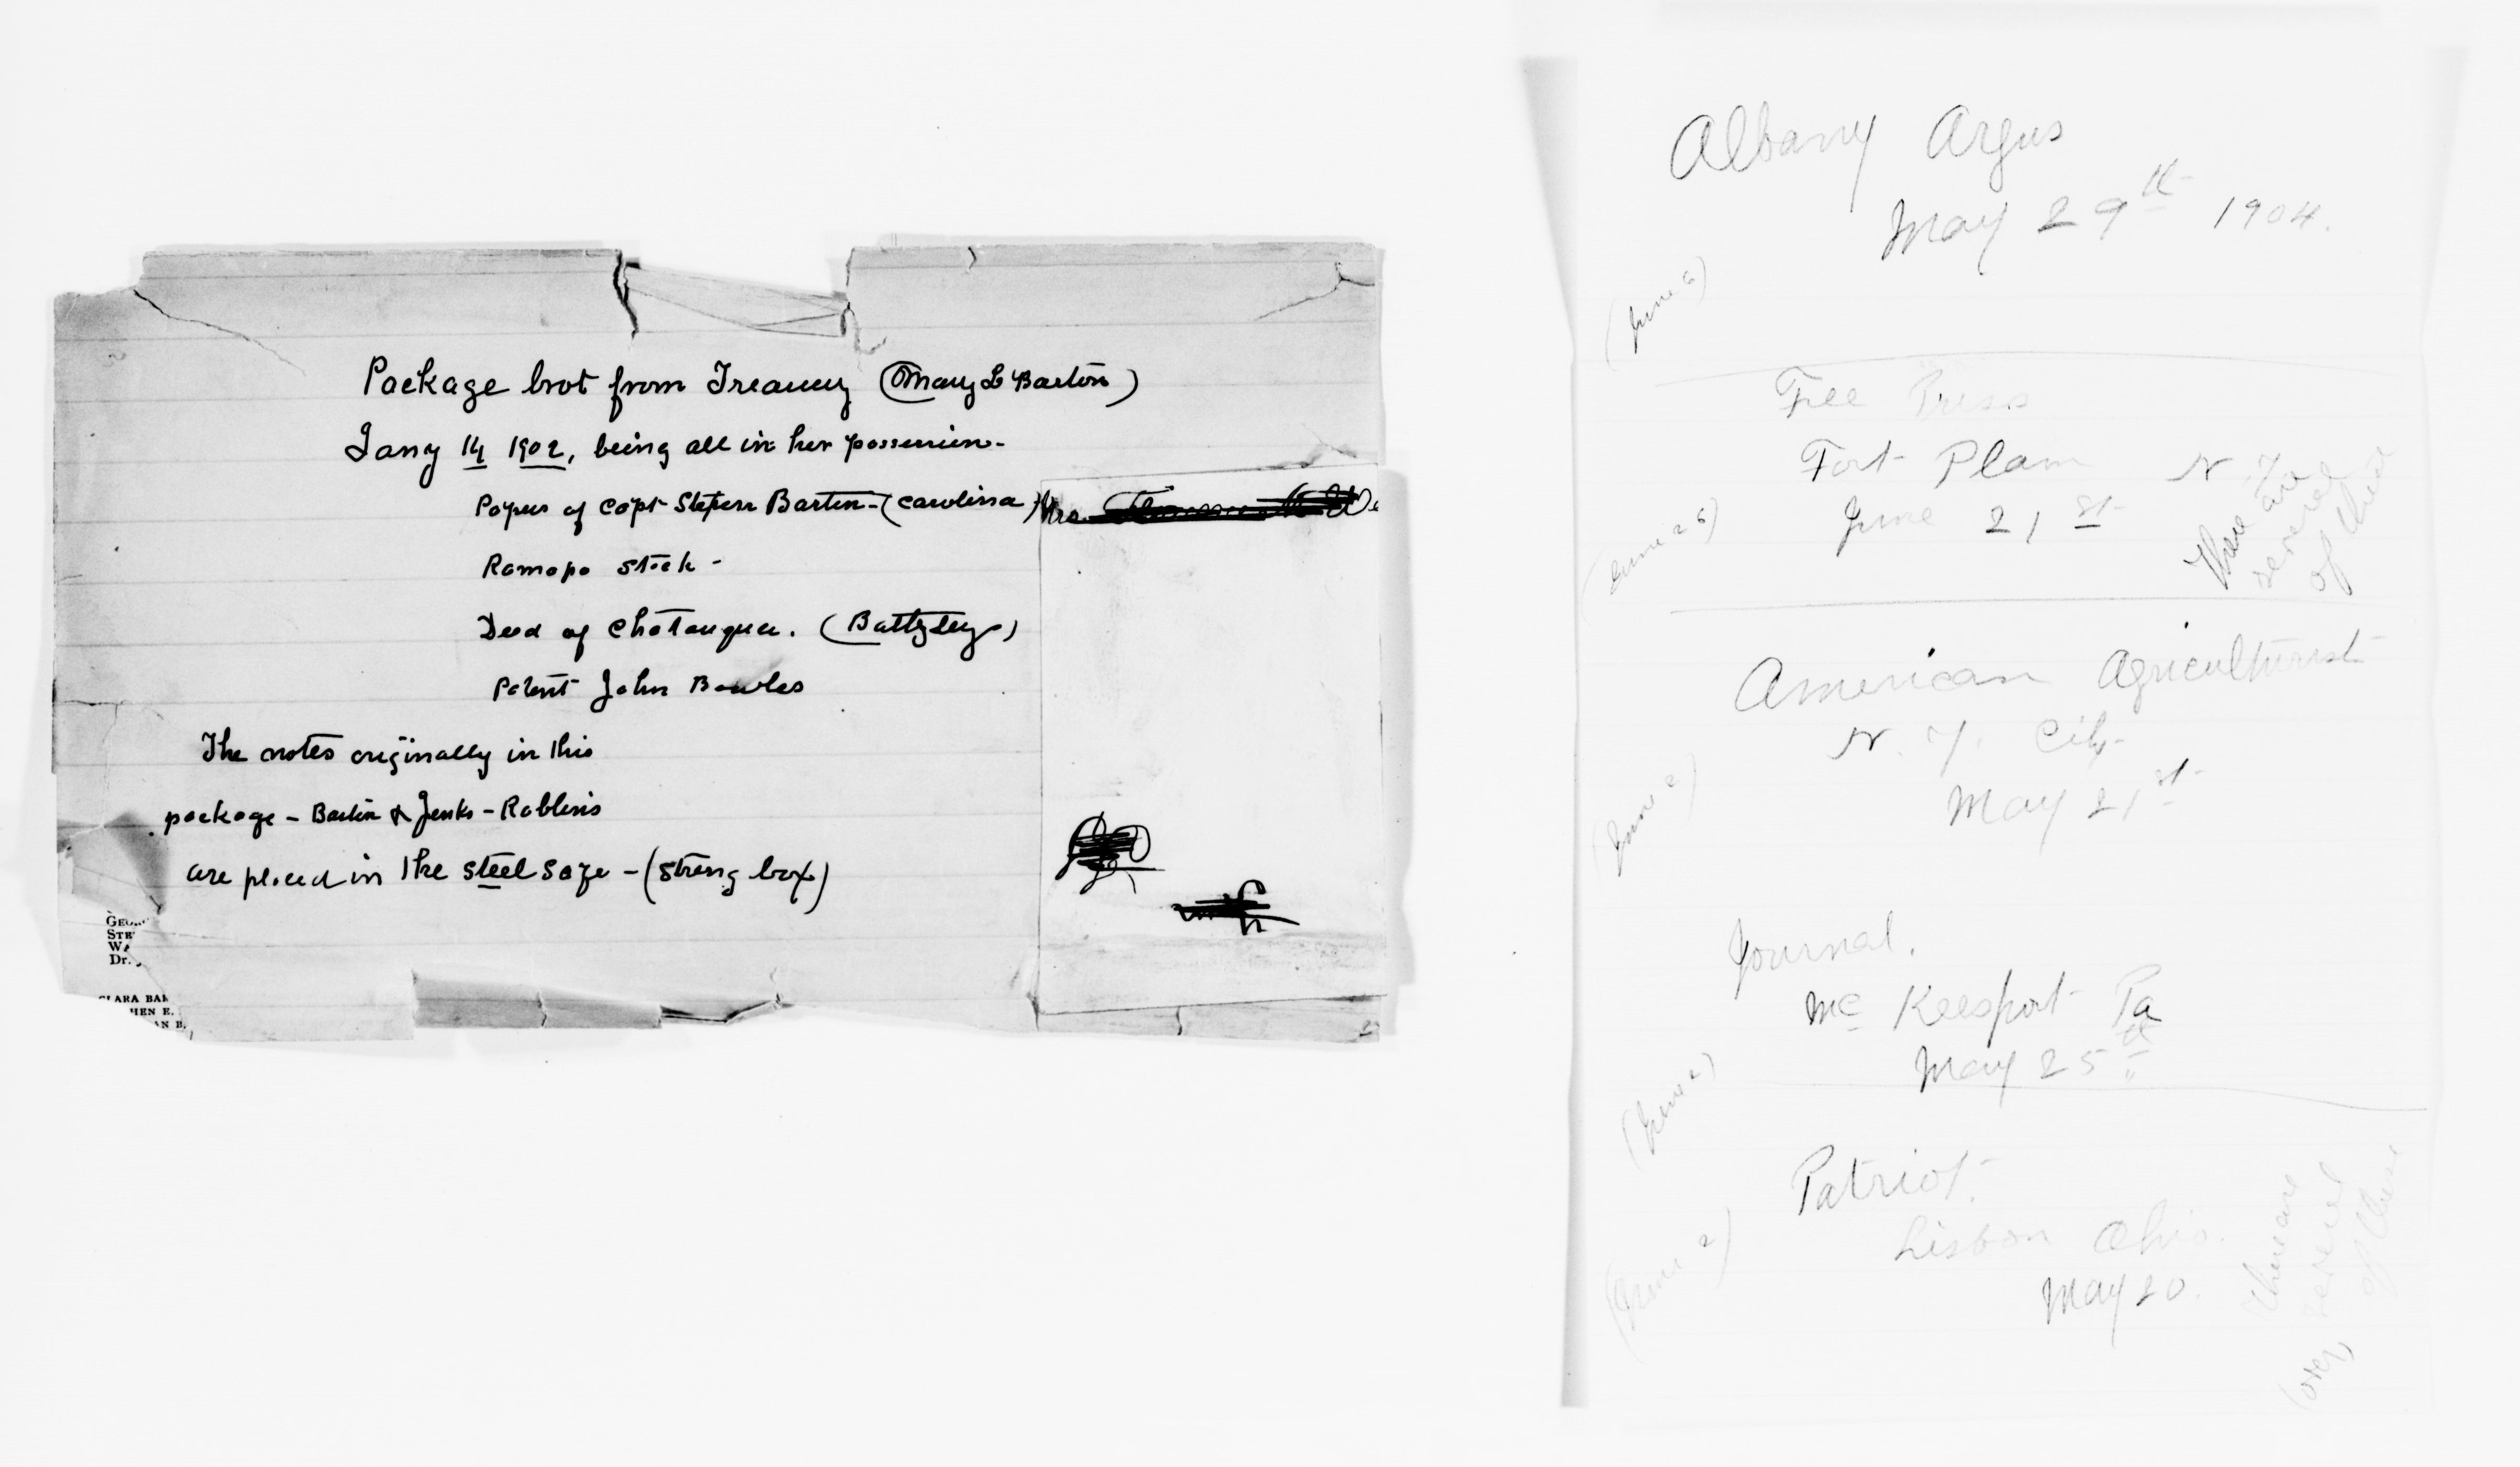 Package brot from Treasury (Mary L Barton)
Jany 14 1902, being all in her possession-
Papers of Capt Stephen Barton-(Carolina)
Mrs.
Ramapo stock-
Deed of Chatauqua. (Battyley)
Patent John Bowles
The notes originally in this
package - Barton & Jenks - Robbins
are placed in the steel safe - (strong box)
STE
WA
Dr.
CLARA BAR
HEN E.
AN B.
Albany Argus
May 29th 1904.
(June 6)
Free Press
Fort Plain N. Y.
June 21 st
(June 26)
There are
several
of these
American Agriculturist
N. Y. City-
May 21st
(June 2)
Journal.
Mc Keesport Pa
May 25th
(June 2)
Patriot.
Lisbon Ohio.
May 20.
(June 2)
There are
several
of these
(over)